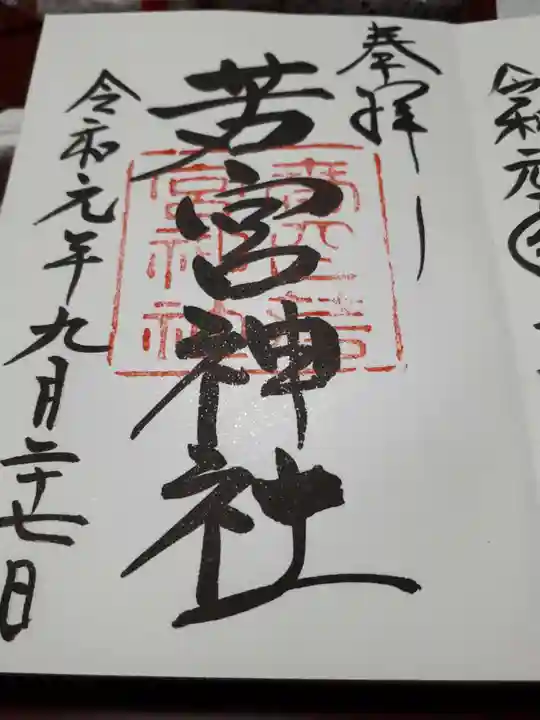 奉拝
若宮神社
令和元年九月二十七日